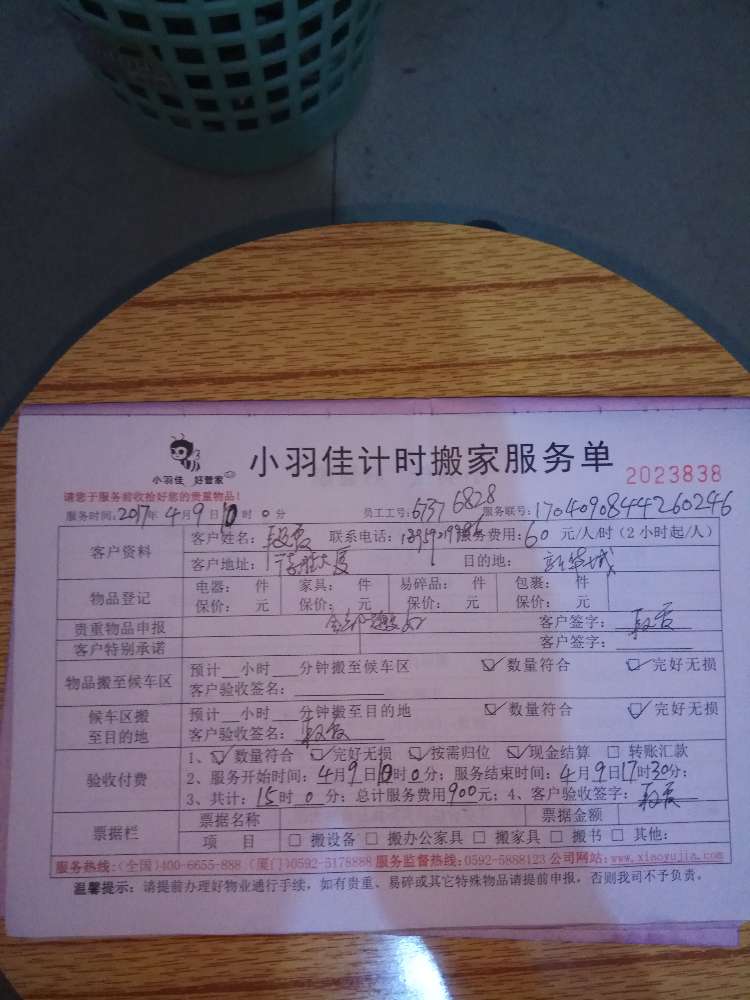 小羽佳 好管家
小羽佳计时搬家服务单
2023838
请您于服务前收拾好您的贵重物品!
服务时间:2017年4月9日10时0分 员工工号:6737 6828 服务联号:17040908444260246
客户资料 客户姓名: 联系电话: 服务费用:60元/人/时(2小时起/人)
客户地址: 大厦 目的地: 新华城
物品登记 电器: 件 家具: 件 易碎品: 件 包裹: 件
保价: 元 保价: 元 保价: 元 保价: 元
贵重物品申报 客户签字:
客户特别承诺 客户签字:
物品搬至候车区 预计__小时___分钟搬至候车区 ☑数量符合 ☑完好无损
客户验收签名:
候车区搬至目的地 预计__小时___分钟搬至目的地 ☑数量符合 ☑完好无损
客户验收签名:
验收付费 1、☑数量符合 ☑完好无损 ☑按需归位 ☑现金结算 □ 转账汇款
2、服务开始时间:4月9日10时0分;服务结束时间:4月9日17时30分;
3、共计:15时0分;总计服务费用900元;4、客户验收签字:
票据栏 票据名称 票据金额
项 目 □ 搬设备 □ 搬办公家具 □ 搬家具 □ 搬书 □ 其他:
服务热线:(全国)400-6655-888 (厦门)0592-5178888 服务监督热线:0592-5888123 公司网站:www.xiaoyujia.com
温馨提示:请提前办理好物业通行手续,如有贵重、易碎或其它特殊物品请提前申报,否则我司不予负责。